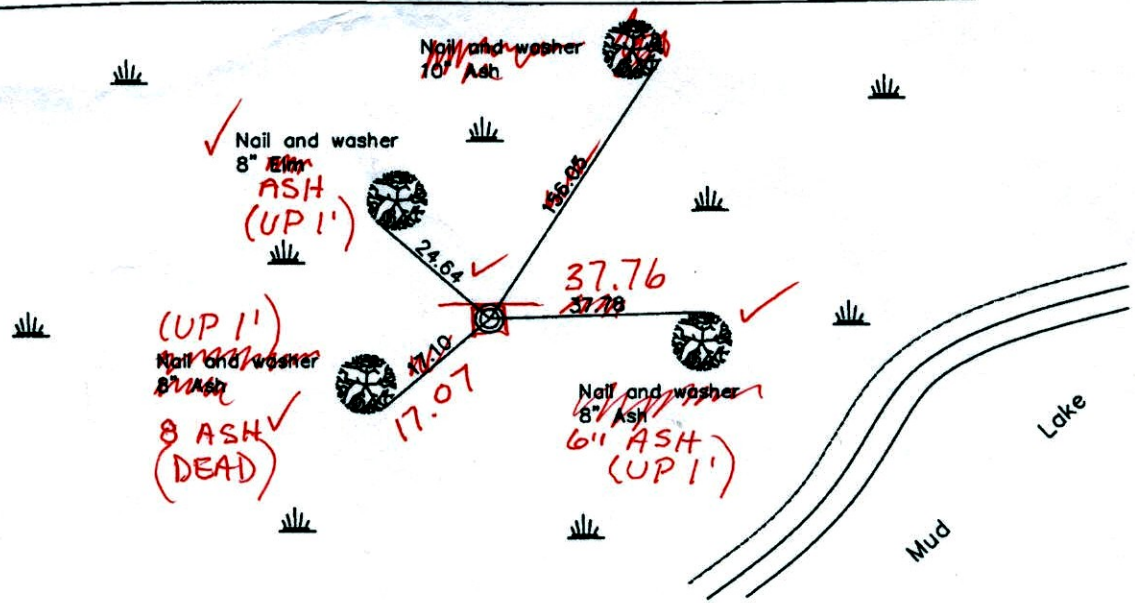 Nail and washer
10" Ash
Nail and washer
8" Elm
ASH
(UP 1')
24.64
37.76
37.78
(UP 1')
Nail and washer
8" Ash
8 ASH
(DEAD)
17.10
17.07
Nail and washer
8" Ash
6" ASH
(UP 1')
Mud
Lake